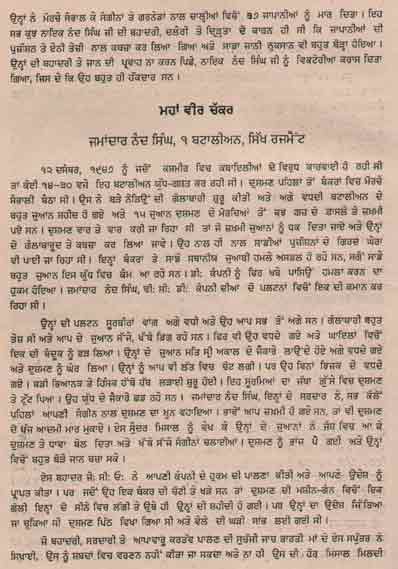 ਉਨ੍ਹਾਂ ਨੇ ਮੋਰਚੇ ਸੰਭਾਲ ਕੇ ਸੰਗੀਨਾਂ ਤੇ ਗਰਨੇਡਾਂ ਨਾਲ ਚਾਲ੍ਹੀਆਂ ਵਿਚੋਂ ੩੭ ਜਾਪਾਨੀਆਂ ਨੂੰ ਮਾਰ ਦਿਤਾ । ਇਹ
ਸਭ ਕੁਝ ਨਾਇਕ ਨੰਦ ਸਿੰਘ ਜੀ ਦੀ ਬਹਾਦਰੀ, ਦਲੇਰੀ ਤੇ ਦ੍ਰਿੜਤਾ ਦੇ ਕਾਰਨ ਹੀ ਸੀ ਕਿ ਜਾਪਾਨੀਆਂ ਦੀ
ਪੁਜ਼ੀਸ਼ਨ ਤੇ ਏਨੀ ਤੇਜ਼ੀ ਨਾਲ ਕਬਜ਼ਾ ਕਰ ਲਿਆ ਗਿਆ ਅਤੇ ਸਾਡਾ ਜਾਨੀ ਨੁਕਸਾਨ ਵੀ ਬਹੁਤ ਥੋੜ੍ਹਾ ਹੋਇਆ ।
ਉਨ੍ਹਾਂ ਦੀ ਬਹਾਦਰੀ ਤੇ ਜਾਨ ਦੀ ਪ੍ਰਵਾਹ ਨਾ ਕਰਨ ਪਿਛੇ, ਨਾਇਕ ਨੰਦ ਸਿੰਘ ਜੀ ਨੂੰ ਵਿਕਟੋਰੀਆ ਕਰਾਸ ਦਿਤਾ
ਗਿਆ, ਜਿਸ ਦੇ ਕਿ ਉਹ ਬਹੁਤ ਹੀ ਹੱਕਦਾਰ ਸਨ ।
ਮਹਾਂ ਵੀਰ ਚੱਕਰ
ਜਮਾਂਦਾਰ ਨੰਦ ਸਿੰਘ, ੧ ਬਟਾਲੀਅਨ, ਸਿੱਖ ਰਜਮੈਂਟ
੧੨ ਦਸੰਬਰ, ੧੯੪੭ ਨੂੰ ਜਦੋਂ ਕਸ਼ਮੀਰ ਵਿਚ ਕਬਾਇਲੀਆਂ ਦੇ ਵਿਰੁਧ ਕਾਰਵਾਈ ਹੋ ਰਹੀ ਸੀ
ਤਾਂ ਕੋਈ ੧੪-੩੦ ਵਜੇ ਇਹ ਬਟਾਲੀਅਨ ਯੁੱਧ-ਗਸ਼ਤ ਕਰ ਰਹੀ ਸੀ । ਦੁਸ਼ਮਣ ਪਹਿਲਾਂ ਤੋਂ ਬੰਕਰਾਂ ਵਿਚ ਮੋਰਚੇ
ਸੰਭਾਲੀ ਬੈਠਾ ਸੀ । ਉਸ ਨੇ ਬੜੇ ਨੇੜਿਉਂ ਦੀ ਗੋਲਾਬਾਰੀ ਸ਼ੁਰੂ ਕੀਤੀ ਅਤੇ ਅਗੇ ਵਧਦੀ ਬਟਾਲੀਅਨ ਦੇ
ਬਹੁਤ ਜੁਆਨ ਸ਼ਹੀਦ ਹੋ ਗਏ ਅਤੇ ੧੫ ਜੁਆਨ ਦੁਸ਼ਮਣ ਦੇ ਮੋਰਚਿਆਂ ਤੋਂ ਕੁਝ ਗਜ਼ ਦੇ ਫਾਸਲੇ ਤੇ ਜ਼ਖ਼ਮੀ
ਪਏ ਸਨ । ਦੁਸ਼ਮਣ ਵਾਰ ਤੇ ਵਾਰ ਕਰੀ ਜਾ ਰਿਹਾ ਸੀ ਤਾਂ ਜੋ ਜ਼ਖ਼ਮੀ ਜੁਆਨਾਂ ਨੂੰ ਧਕ ਦਿਤਾ ਜਾਏ ਅਤੇ ਉਨ੍ਹਾਂ
ਦੇ ਗੋਲਾਬਾਰੂਦ ਤੇ ਕਬਜ਼ਾ ਕਰ ਲਿਆ ਜਾਵੇ । ਉਹ ਨਾਲ ਹੀ ਨਾਲ ਸਾਡੀਆਂ ਪੁਜ਼ੀਸ਼ਨਾਂ ਦੇ ਗਿਰਦੇ ਘੇਰਾ
ਵੀ ਪਾਈ ਜਾ ਰਿਹਾ ਸੀ । ਇਨ੍ਹਾਂ ਬੰਕਰਾਂ ਤੇ ਸਾਡੇ ਸਥਾਨੀਯ ਜੁਆਬੀ ਹਮਲੇ ਅਸਫਲ ਹੋ ਰਹੇ ਸਨ, ਸਗੋਂ ਸਾਡੇ
ਬਹੁਤ ਜੁਆਨ ਇਸ ਯੁੱਧ ਵਿਚ ਕੰਮ ਆ ਰਹੇ ਸਨ । ਡੀ: ਕੰਪਨੀ ਨੂੰ ਫਿਰ ਖਬੇ ਪਾਸਿਉਂ ਹਮਲਾ ਕਰਨ ਦਾ
ਹੁਕਮ ਹੋਇਆ । ਜਮਾਂਦਾਰ ਨੰਦ ਸਿੰਘ, ਵੀ: ਸੀ: ਡੀ: ਕੰਪਨੀ ਦੀਆਂ ਦੋ ਪਲਟਨਾਂ ਵਿਚੋਂ ਇਕ ਦੀ ਕਮਾਨ ਕਰ
ਰਿਹਾ ਸੀ ।
ਉਨ੍ਹਾਂ ਦੀ ਪਲਟਨ ਸੂਰਬੀਰਾਂ ਵਾਂਗ ਅਗੇ ਵਧੀ ਅਤੇ ਉਹ ਆਪ ਸਭ ਤੋਂ ਅਗੇ ਸਨ । ਗੋਲਾਬਾਰੀ ਬਹੁਤ
ਤੇਜ਼ ਸੀ ਅਤੇ ਆਪ ਦੇ ਜੁਆਨ ਸੱਜੇ, ਖੱਬੇ ਡਿਗ ਰਹੇ ਸਨ । ਫਿਰ ਵੀ ਉਹ ਵਧਦੇ ਗਏ ਅਤੇ ਘਾਇਲਾਂ ਵਿਚੋਂ
ਇਕ ਦੀ ਬੰਦੂਕ ਨੂੰ ਫੜ ਲਿਆ । ਉਨ੍ਹਾਂ ਦੇ ਜੁਆਨ ਸਤਿ ਸ੍ਰੀ ਅਕਾਲ ਦੇ ਜੈਕਾਰੇ ਲਾਉਂਦੇ ਹੋਏ ਅਗੇ ਵਧਦੇ ਗਏ
ਅਤੇ ਦੁਸ਼ਮਣ ਨੂੰ ਘੇਰ ਲਿਆ । ਉਨ੍ਹਾਂ ਨੂੰ ਆਪ ਵੀ ਲੱਤ ਵਿਚ ਚੋਟ ਲਗੀ । ਪਰ ਉਹ ਬਿਨਾਂ ਝਿਜਕ ਦੇ ਵਧਦੇ
ਗਏ । ਬੜੀ ਭਿਆਨਕ ਤੇ ਹਿੰਸਕ ਹੱਥੋ ਹੱਥ ਲੜਾਈ ਸ਼ੁਰੂ ਹੋਈ । ਇਹ ਸੂਰਮਿਆਂ ਦਾ ਜੱਥਾ ਗੁੱਸੇ ਵਿਚ ਦੁਸ਼ਮਣ
ਤੇ ਟੁੱਟ ਪਿਆ । ਉਹ ਯੁੱਧ ਦੇ ਜੈਕਾਰੇ ਛਡ ਰਹੇ ਸਨ । ਜਮਾਂਦਾਰ ਨੰਦ ਸਿੰਘ, ਇਨ੍ਹਾਂ ਦੇ ਸਰਦਾਰ ਨੇ, ਸਭ ਕੋਲੋਂ
ਪਹਿਲਾਂ ਆਪਣੀ ਸੰਗੀਨ ਨਾਲ ਦੁਸ਼ਮਣ ਦਾ ਖ਼ੂਨ ਵਹਾਇਆ । ਭਾਵੇਂ ਆਪ ਜ਼ਖ਼ਮੀ ਹੋ ਗਏ ਸਨ, ਤਾਂ ਵੀ ਦੁਸ਼ਮਣ
ਦੇ ਪੁੰਜ ਆਦਮੀ ਮਾਰ ਮੁਕਾਏ । ਇਸ ਸੁੰਦਰ ਮਿਸਾਲ ਨੂੰ ਵੇਖ ਕੇ ਉਨ੍ਹਾਂ ਦੇ ਜੁਆਨਾਂ ਨੇ ਜੋਸ਼ ਵਿਚ ਆ ਕੇ
ਦੁਸ਼ਮਣ ਤੇ ਧਾਵਾ ਬੋਲ ਦਿਤਾ ਅਤੇ ਖੱਬੇ ਸੱਜੇ ਸੰਗੀਨਾਂ ਚਲਾਈਆਂ । ਦੁਸ਼ਮਣ ਨੂੰ ਭਾਂਜ ਪੈ ਗਈ ਅਤੇ ਉਨ੍ਹਾਂ
ਵਿਚੋਂ ਬਹੁਤ ਥੋੜੇ ਜਾਨ ਬਚਾ ਸਕੇ ।
ਏਸ ਬਹਾਦਰ ਜੇ: ਸੀ: ਓ: ਨੇ ਆਪਣੀ ਕੰਪਨੀ ਦੇ ਹੁਕਮ ਦੀ ਪਾਲਣਾ ਕੀਤੀ ਅਤੇ ਆਪਣੇ ਉਦੇਸ਼ ਨੂੰ
ਪ੍ਰਾਪਤ ਕੀਤਾ । ਪਰ ਜਦੋਂ ਉਹ ਇਕ ਬੰਕਰ ਦੀ ਚੋਟੀ ਤੇ ਖੜੇ ਸਨ ਤਾਂ ਦੁਸ਼ਮਣ ਦੀ ਮਸ਼ੀਨ-ਗੰਨ ਵਿਚੋਂ ਇਕ
ਗੋਲੀ ਇਨ੍ਹਾਂ ਦੇ ਸੀਨੇ ਵਿਚ ਲਗੀ ਤੇ ਉਥੇ ਹੀ ਉਨ੍ਹਾਂ ਦੀ ਸ਼ਹੀਦੀ ਹੋ ਗਈ । ਪਰ ਉਨ੍ਹਾਂ ਦਾ ਉਦੇਸ਼ ਜਿੱਤਿਆ
ਜਾ ਚੁਕਿਆ ਸੀ ਦੁਸ਼ਮਣ ਪਿੱਠ ਵਿਖਾ ਗਿਆ ਸੀ ਅਤੇ ਵੇਲੇ ਦੀ ਘੜੀ ਸਾਂਭ ਲਈ ਗਈ ਸੀ ।
ਜੋ ਬਹਾਦਰੀ, ਸਰਦਾਰੀ ਤੇ ਆਪਾਵਾਰੂ ਕਰਤੱਵ ਪਾਲਣ ਦੀ ਸੁਚੱਜੀ ਜਾਚ ਭਾਰਤੀ ਮਾਂ ਦੇ ਏਸ ਸਪੁੱਤਰ ਨੇ
ਸਿਖਾਈ, ਉਸ ਨੂੰ ਸ਼ਬਦਾਂ ਵਿਚ ਵਰਣਨ ਨਹੀਂ ਕੀਤਾ ਜਾ ਸਕਦਾ ਅਤੇ ਨਾ ਹੀ ਉਸ ਦੀ ਹੋਰ ਮਿਸਾਲ ਮਿਲਦੀ